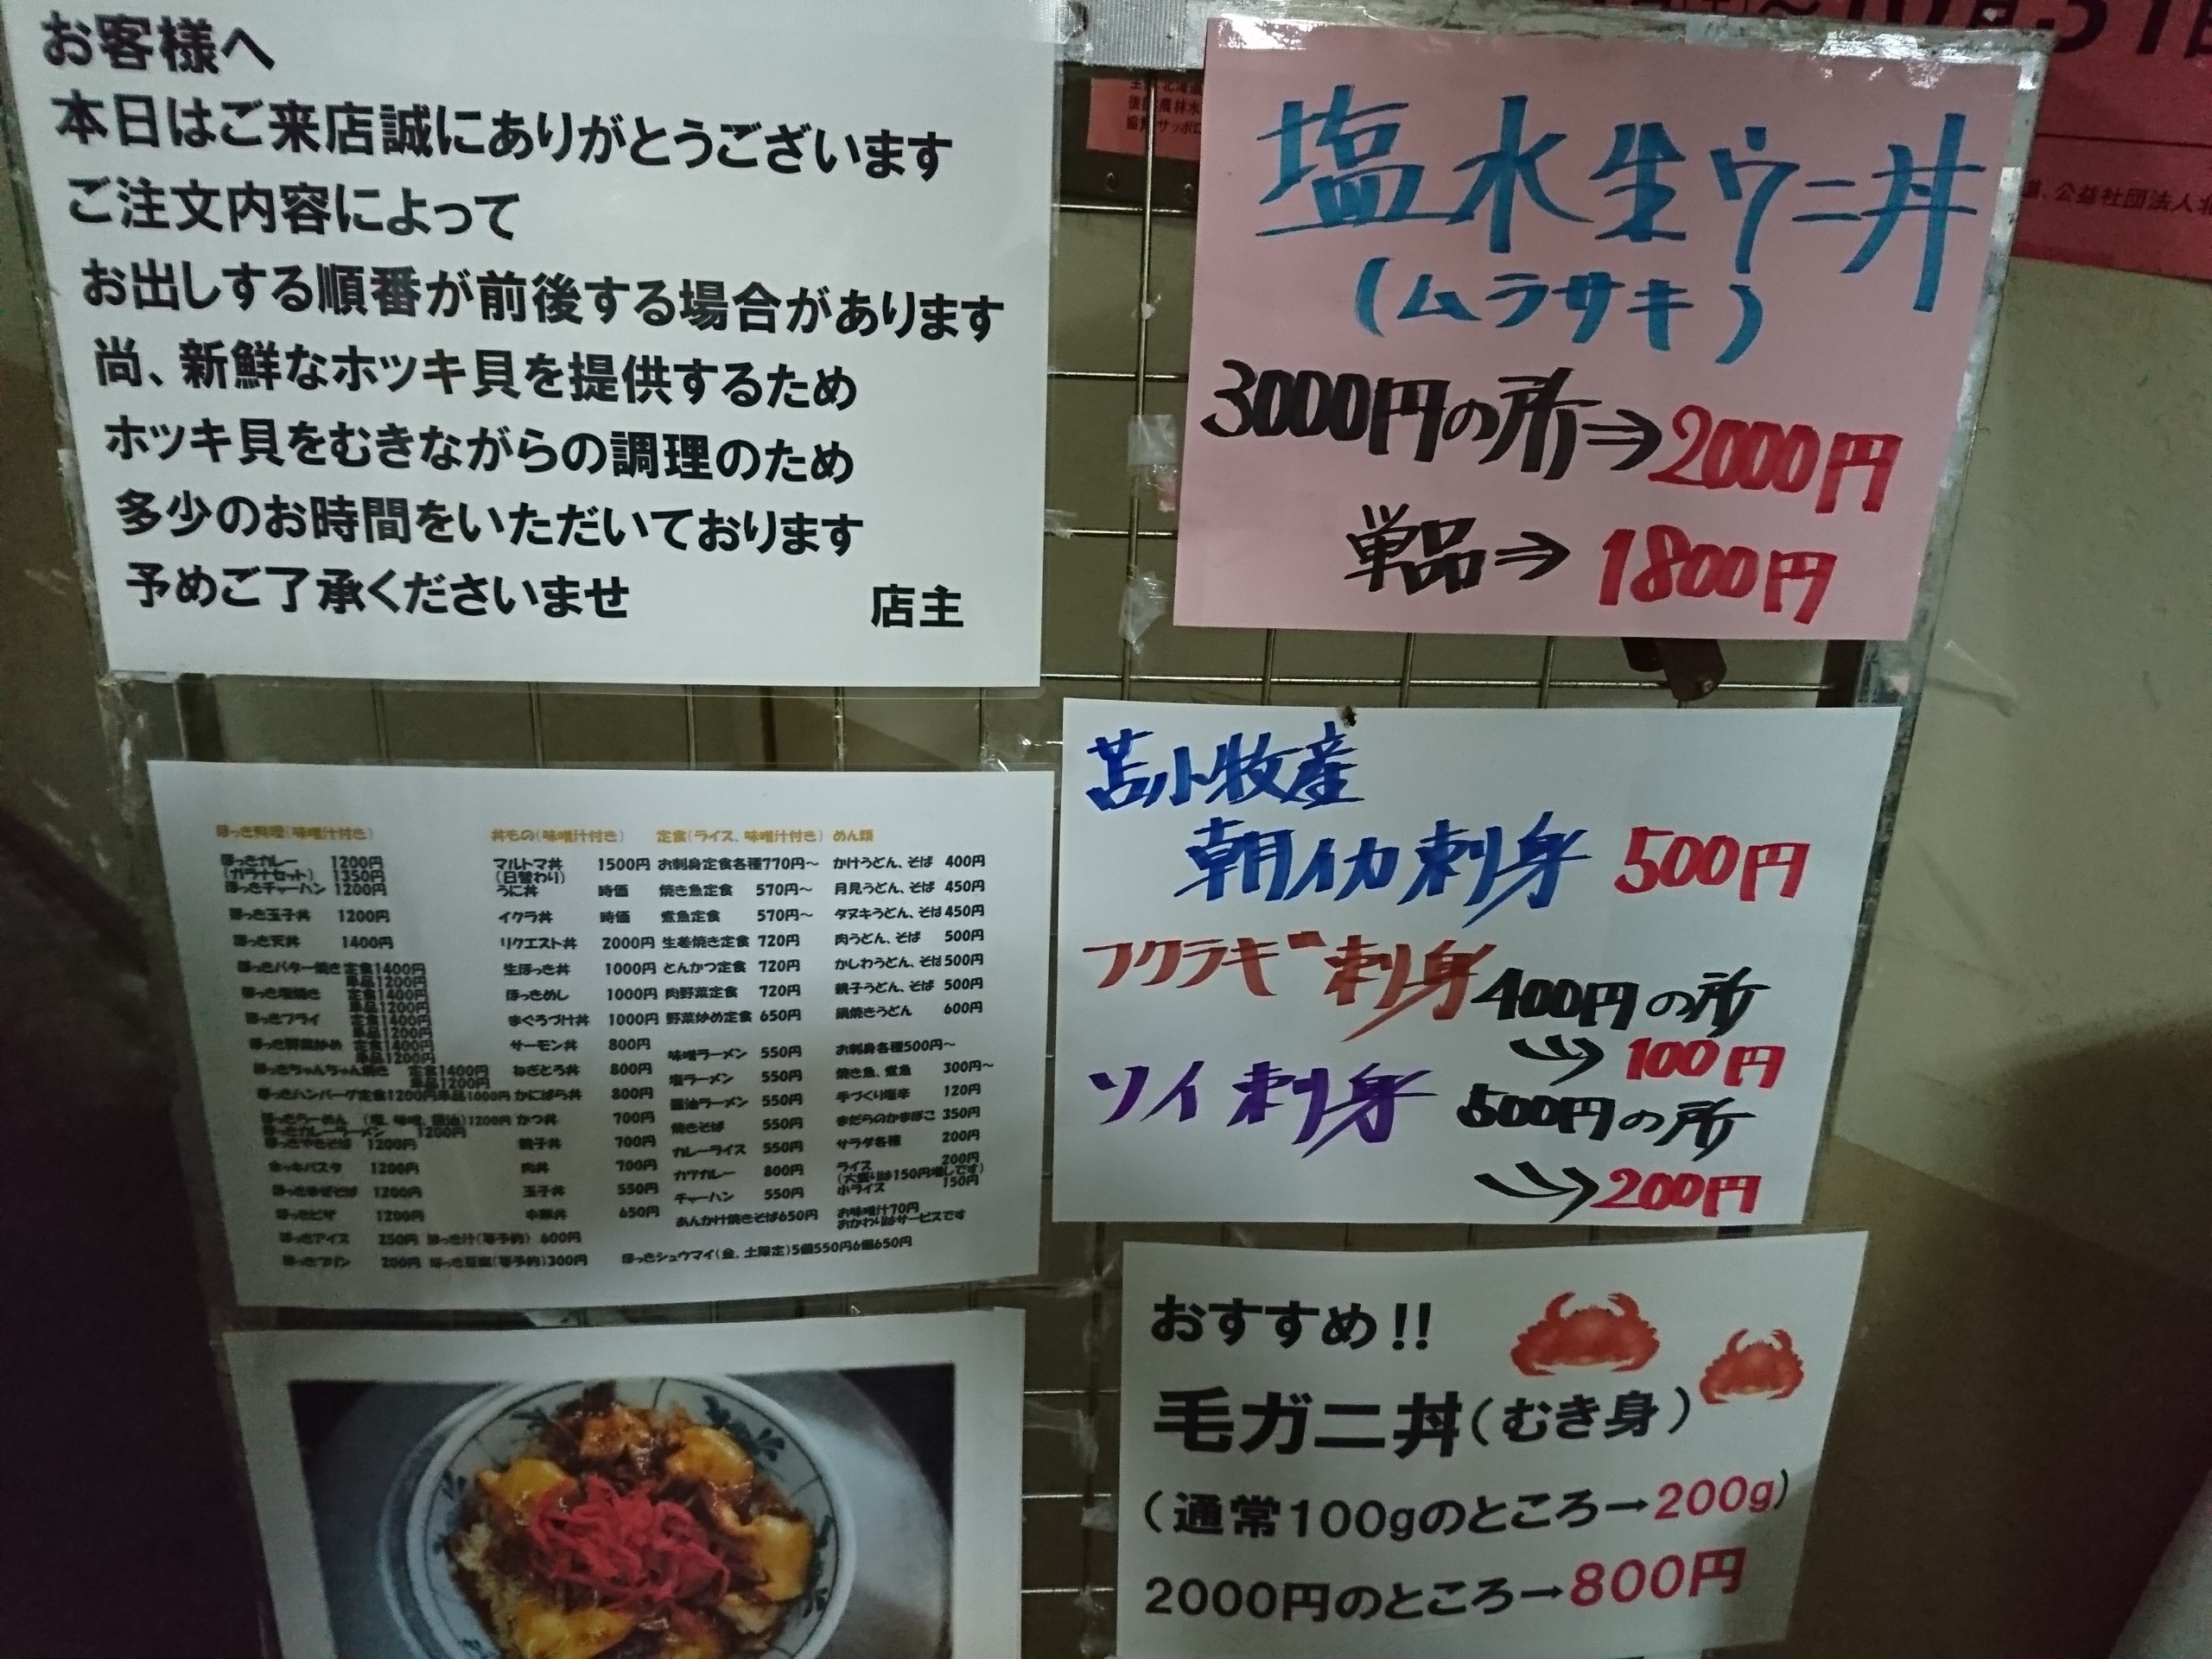 お客様へ
本日はご来店誠にありがとうございます
ご注文内容によって
お出しする順番が前後する場合があります
尚、新鮮なホッキ貝を提供するため
ホッキ貝をむきながらの調理のため
多少のお時間をいただいております
予めご了承くださいませ
店主
塩水生ウニ丼
(ムラサキ)
3000円の所⇒2000円
単品⇒1800円
公益社団法人北
ほっき料理(味噌汁付き)
ほっきカレー 1200円
(ガラナセット) 1350円
ほっきチャーハン 1200円
ほっき玉子丼 1200円
ほっき天丼 1400円
ほっきバター焼き 定食1400円
単品1200円
ほっき塩焼き 定食1400円
単品1200円
ほっきフライ 定食1400円
単品1200円
ほっき野菜炒め 定食1400円
単品1200円
ほっきちゃんちゃん焼き 定食1400円
単品1200円
ほっきハンバーグ定食1200円単品1000円
ほっきらーめん (塩、味噌、醤油)1200円
ほっきカレーラーメン 1200円
ほっきやきそば 1200円
ホッキパスタ 1200円
ほっきまぜそば 1200円
ほっきピザ 1200円
ほっきアイス 250円
ほっきプリン 200円
ほっき汁(要予約) 600円
ほっき豆腐(要予約)300円
丼もの(味噌汁付き)
マルトマ丼 1500円
(日替わり)
うに丼 時価
イクラ丼 時価
リクエスト丼 2000円
生ほっき丼 1000円
ほっきめし 1000円
まぐろづけ丼 1000円
サーモン丼 800円
ねぎとろ丼 800円
かにばら丼 800円
かつ丼 700円
親子丼 700円
肉丼 700円
玉子丼 550円
中華丼 650円
定食(ライス、味噌汁付き)
お刺身定食各種770円～
焼き魚定食 570円～
煮魚定食 570円～
生姜焼き定食 720円
とんかつ定食 720円
肉野菜定食 720円
野菜炒め定食 650円
味噌ラーメン 550円
塩ラーメン 550円
醤油ラーメン 550円
焼きそば 550円
カレーライス 550円
カツカレー 800円
チャーハン 550円
あんかけ焼きそば650円
ほっきシュウマイ(金、土限定)5個550円6個650円
めん類
かけうどん、そば 400円
月見うどん、そば 450円
タヌキうどん、そば 450円
肉うどん、そば 500円
かしわうどん、そば 500円
親子うどん、そば 500円
鍋焼きうどん 600円
お刺身各種500円～
焼き魚、煮魚 300円～
手づくり塩辛 120円
まだらのかまぼこ 350円
サラダ各種 200円
ライス 200円
(大盛りは150円増しです)
小ライス 150円
お味噌汁70円
おかわりはサービスです
苫小牧産
朝イカ刺身 500円
フクラギ刺身 400円の所
→100円
ソイ刺身 500円の所
→200円
おすすめ!!
毛ガニ丼(むき身)
(通常100gのところ→200g)
2000円のところ→800円